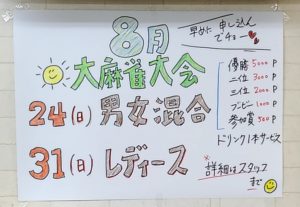 8月
大麻雀大会
早めに申し込んでチョー
優勝 5000P
二位 3000P
三位 2000P
ブービー 1000P
参加賞 500P
ドリンク1本サービス
24(日) 男女混合
31(日) レディース
※詳細はスタッフまで